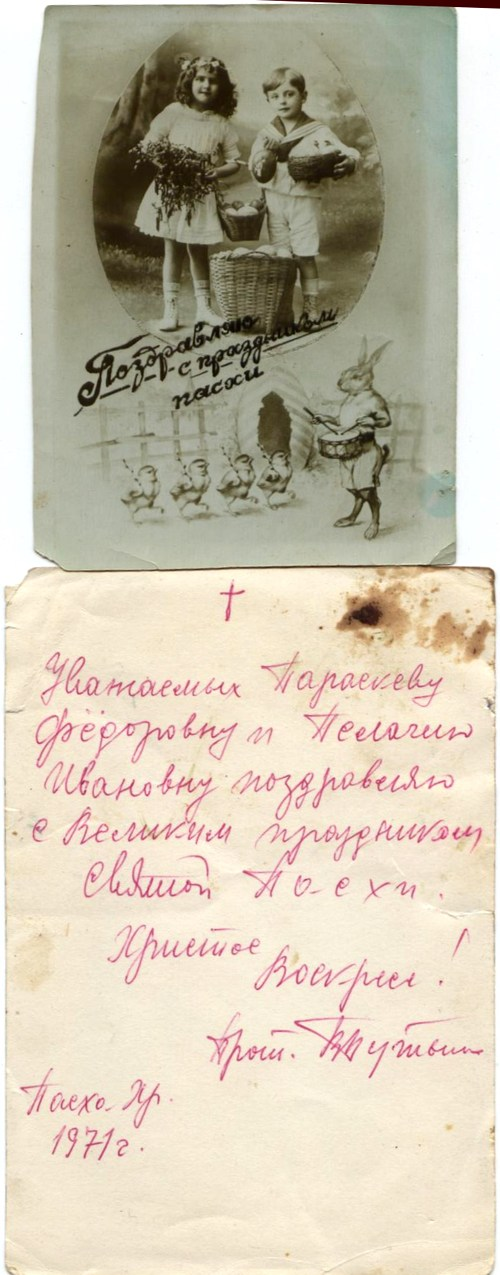 Поздравляю
с праздником
пасхи
†
Уважаемых Параскеву
Фёдоровну и Пелагию
Ивановну поздравляю
с Великим праздником
святой Пасхи.
Христос
Воскресе!
Прот.
Пасха Хр.
1971 г.